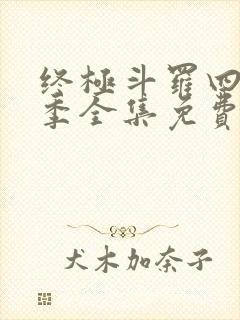 终極斗羅四
季全集免費
犬木加奈子